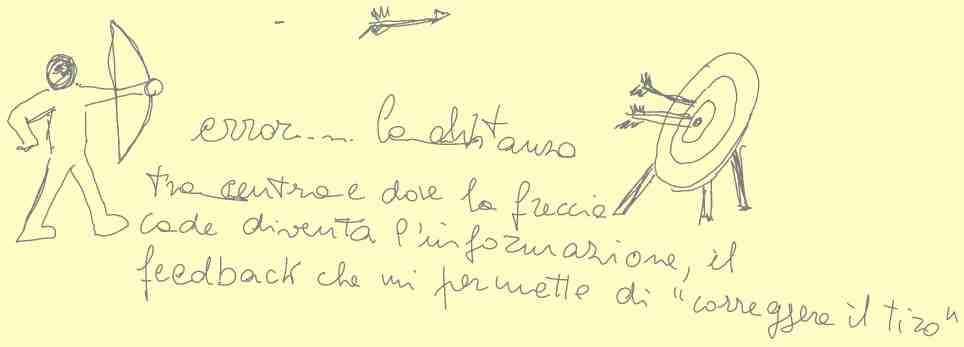 error.... la distanza
tra centro e dove la freccia
cade diventa l'informazione, il
feedback che mi permette di "correggere il tiro"